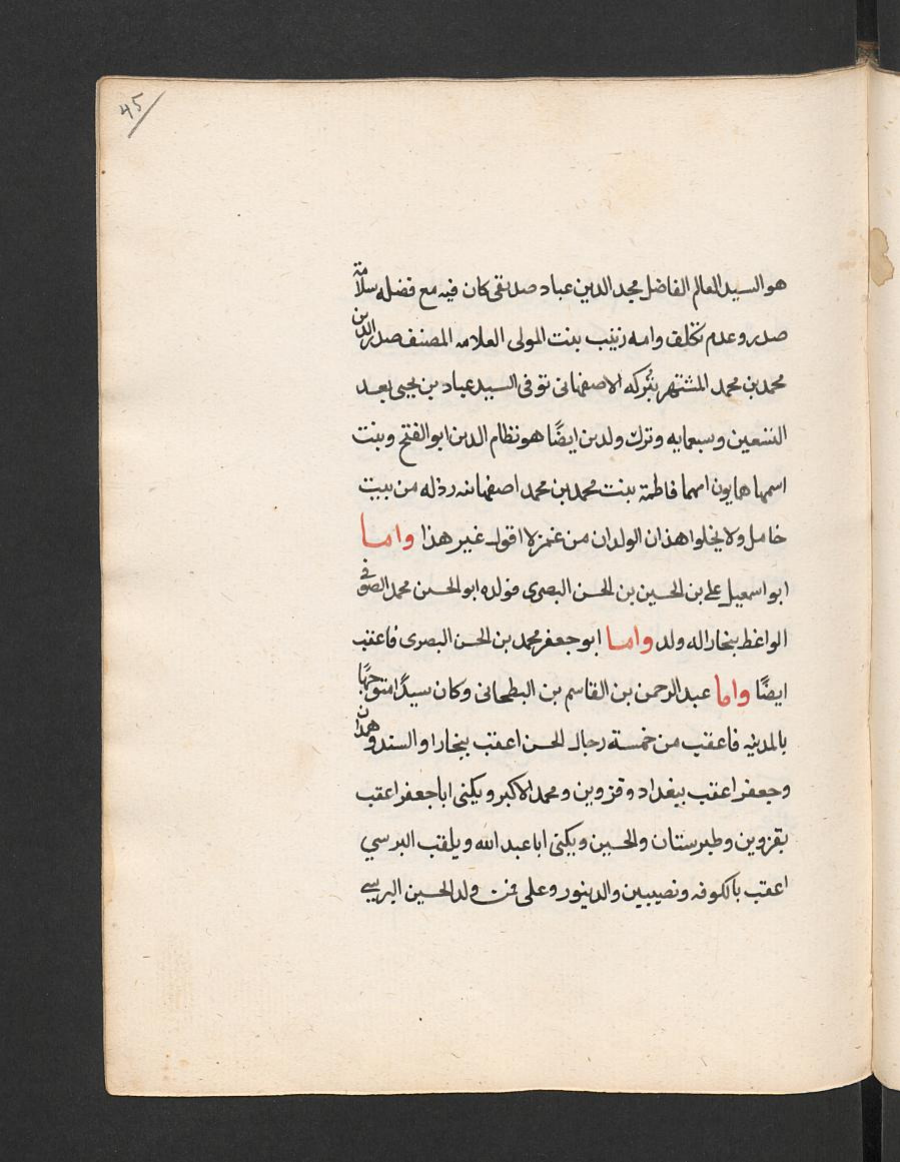 45
هو السيد العالم الفاضل مجد الدين عباد صديقى كان فيه مع فضله سلامة
صدر وعدم تكلف وامه زينب بنت المولى العلامه المصنف صدر الدين
محمد بن محمد المشتهر بتركه الاصفهانى توفى السيد عباد بن يحيى بعد
التسعين وسبعمايه وترك ولدين ايضًا هو نظام الدين ابو الفتح وبنت
اسمها همايون امهما فاطمة بنت محمد بن محمد اصفهانيه رذله من بيت
خامل ولا يخلوا هذان الولدان من غمز لا اقول غير هذا واما
ابو اسمعيل على بن الحسين بن الحسن البصرى فولده ابو الحسن محمد الصوفى
الواعظ ببخارا له ولد واما ابو جعفر محمد بن الحسن البصرى فاعقب
ايضًا واما عبد الرحمن بن القاسم بن البطحانى وكان سيدًا متوجهًا
بالمدينه فاعقب من خمسة رجال الحسن اعقب ببخارا والسند وهمدان
وجعفر اعقب ببغداد وقزوين ومحمد الاكبر ويكنى ابا جعفر اعقب
بقزوين وطبرستان والحسين ويكنى ابا عبد الله ويلقب البرسي
اعقب بالكوفه ونصيبين والدينور وعلى فمن ولد الحسين البرسي